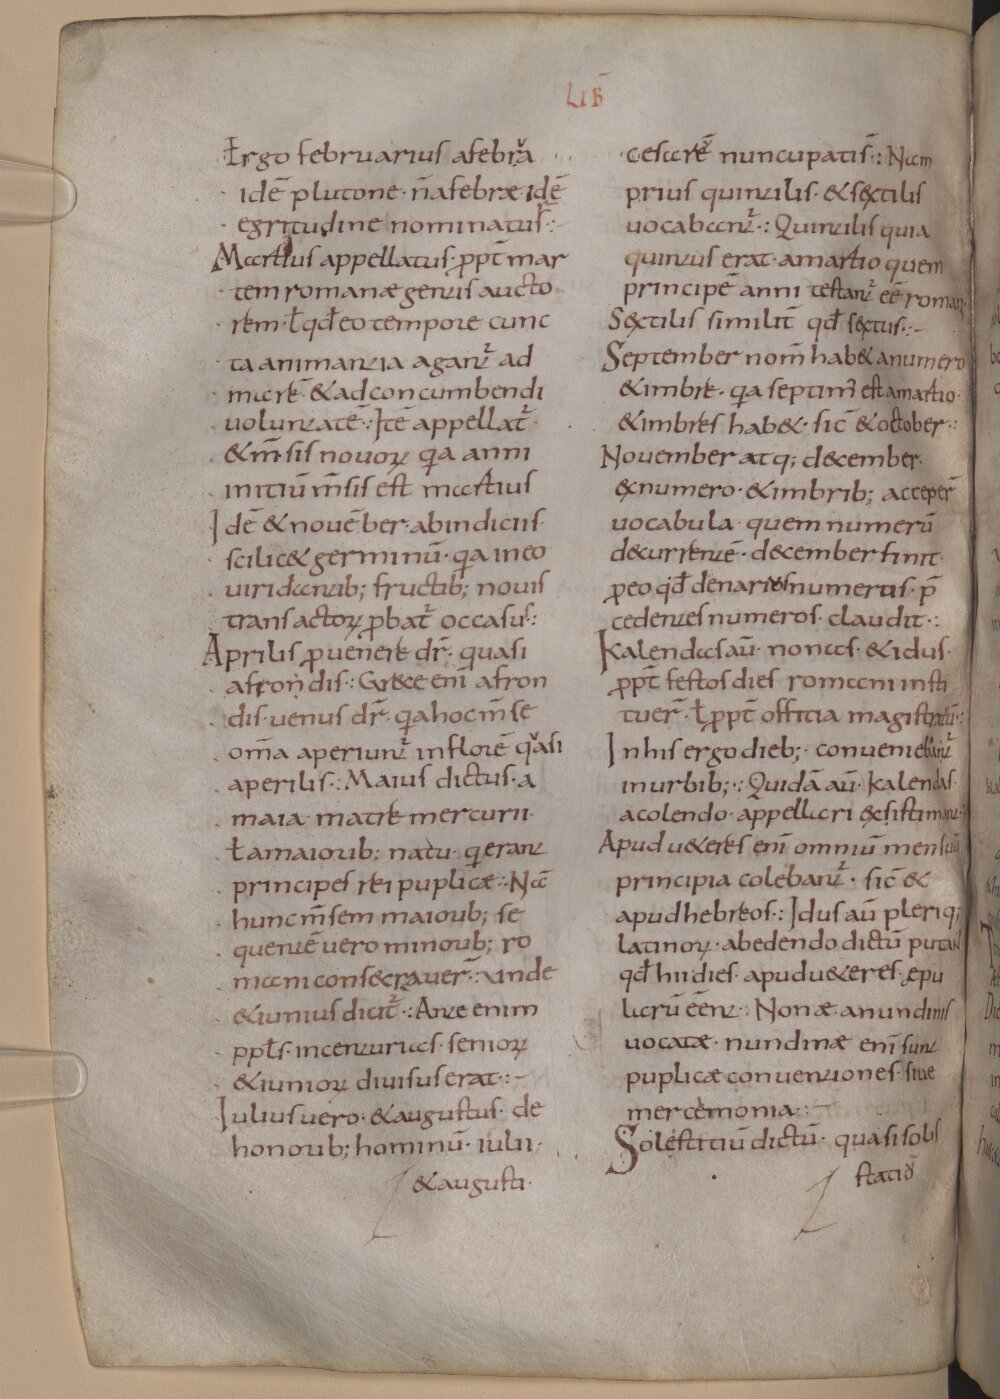 LIB̄
Ergo februarius afebrua
idē plutone· n̄afebrae·idē
egritudine nominatus:
Martius appellatus· ꝓpt̄ mar
tem romanae gentis aucto
rem· ł qđ eo tempore cunc
ta animantia agantʳ ad
marē· &ad concumbendi
uoluntatē·: Itē appellatʳ·
&m̄sis nouoꝝ qia anni
initiū m̄sis est martius
Idē &nouēber·abindiciis·
scilic& germinū· qia ineo
uiridantib; fructib; nouis
transactoꝝ ꝓbatʳ occasus:
Aprilis ꝓuenere dr̄· quasi
afrondis·: Grece eni afron
dis·uenus dr̄· qiahoc m̄se
om̄a aperiuntʳ inflorē quasi
aperilis·: Maius dictus·a
maia· matre mercurii·
ł amaiorib; natu· qi erant
principes rei puplicae·: Na
hunc m̄sem maiorib; se
quentē uero minorib; ro
mani consecrauer̄·: unde
&iunius dicitʳ·: Ante enim
ppłs·incenturias·senioꝝ
&iunioꝝ diuisus erat·:-
Iulius uero·&augustus· de
honorib; hominū· iulii·
&augusti·
cesare nuncupatis·: Nam
prius quintilis·&sextilis
uocabantʳ·: Quintilis quia
quintus erat·amartio quem
principē anni testantʳ eē roman
Sextilis similit̄ qđ sextus·:-
September nom̄ hab&anumero
&imbre· qia septim' est amartio·
&imbres hab&· sic̄ &october·:
Nouember atq; december·
exnumero·&imbrib; acceper̄
uocabula· quem numerū
decurrentē·december finit·
ꝓeo qđ denarius numerus·p̄
cedentes numeros·claudit·:
Kalendas aū· nonas·&idus·
ꝓpt̄ festos dies romani insti
tuer̄· ł ꝓpt̄ officia magistratū·:
Inhis ergo dieb;· conueniebantʳ
inurbib;·: Quidā aū· kalendas·
acolendo·appellari existimant·
Apud u&eres eni omniū mensiū
principia colebantʳ· sic̄ &
apud hebreos·: Idus aū pleriq;
latinoꝝ·abedendo dictū putant
qđ hii dies·apud u&eres·epu
larū eēnt·: Nonae·anundinis
uocatae·nundinae eni sunt
puplicae conuentiones·siue
mercemonia·:
Solestitiū dictū· quasi solis
statio